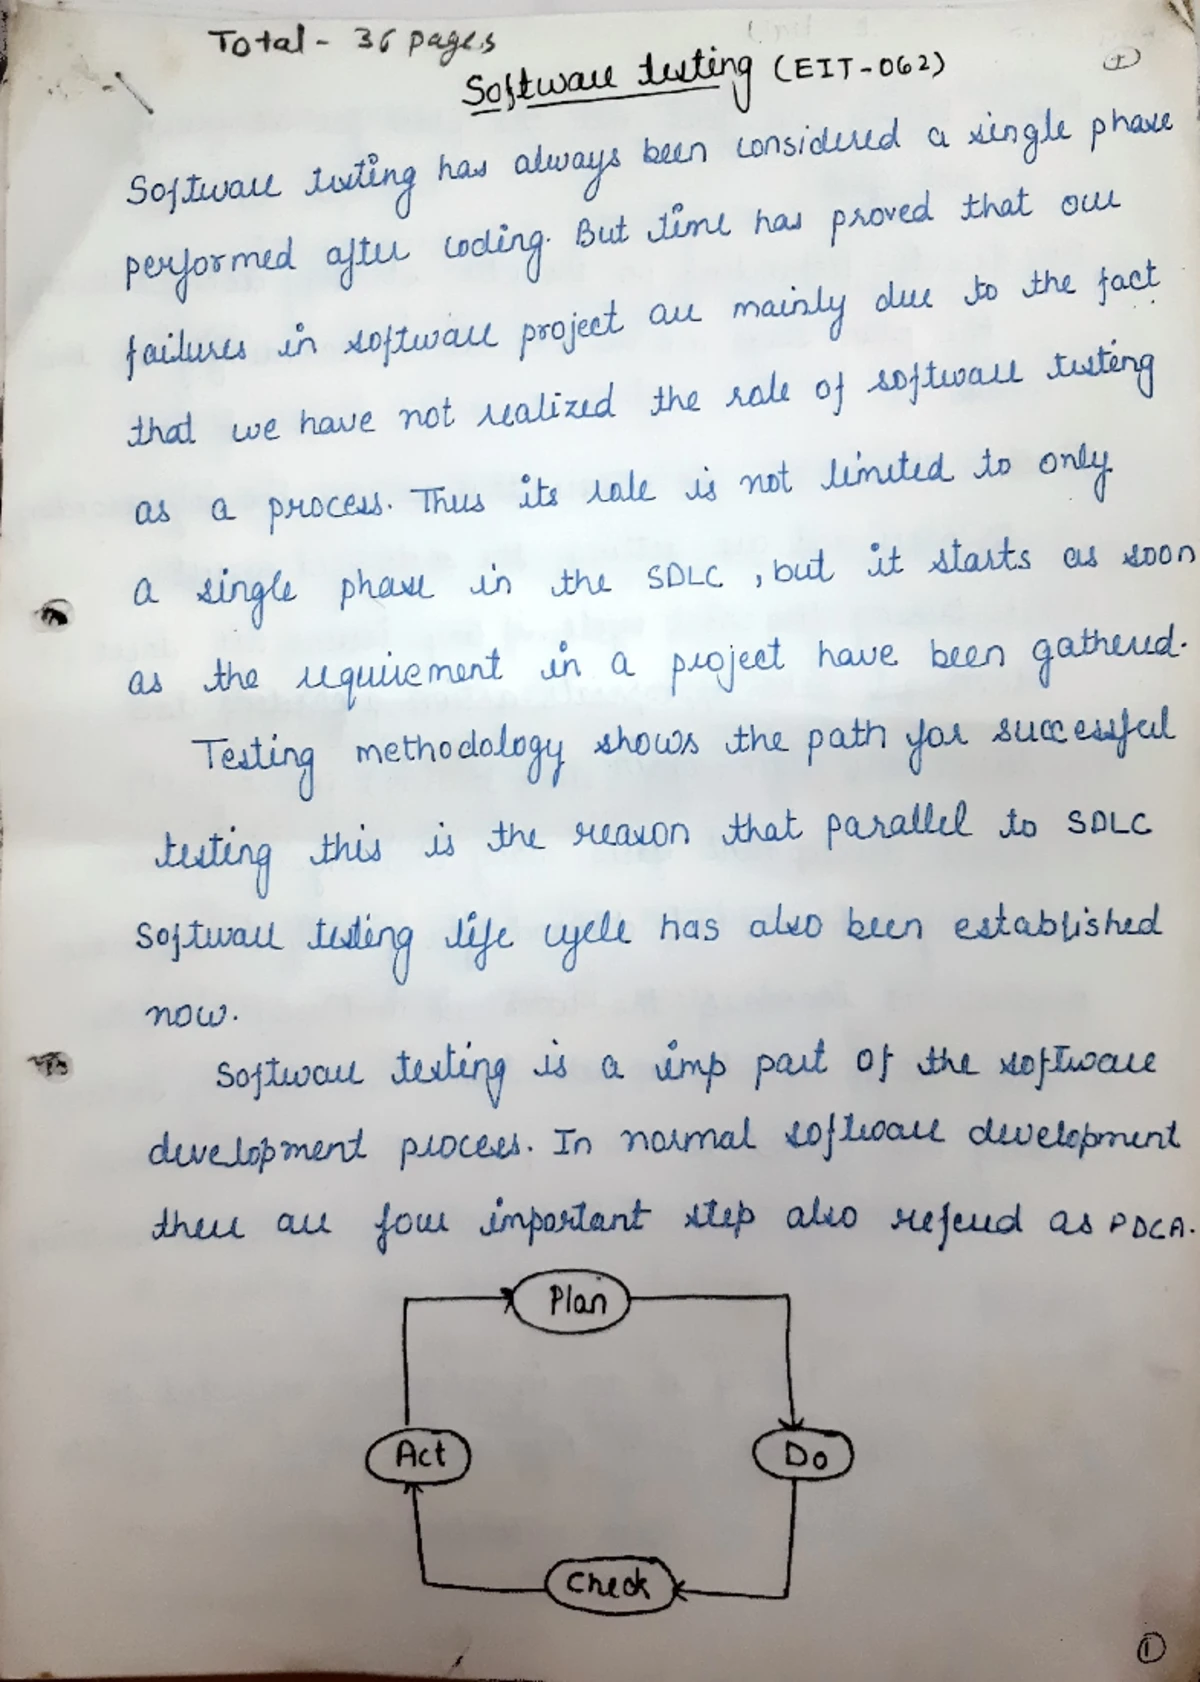 Total - 36 pages
Software testing (EIT-062)
Software testing has always been considered a single phase
performed after coding. But time has proved that our
failures in software project are mainly due to the fact
that we have not realized the role of software testing
as a process. Thus its role is not limited to only
a single phase in the SDLC, but it starts as soon
as the requirement in a project have been gathered.
Testing methodology shows the path for successful
testing this is the reason that parallel to SDLC
Software testing life cycle has also been established
now.
Software testing is a imp part of the software
development process. In normal software development
there are four important step also refered as PDCA.
Plan
Act
Do
Check
1